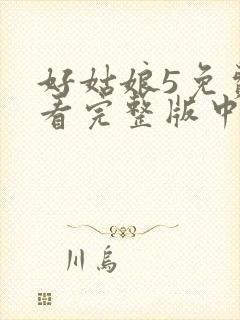 好姑娘5免费
看完整版中
川乌